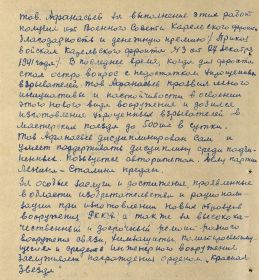 тов. Афанасьев за выполнение этих работ
получил от Военного Совета Карельского фронта
благодарность и денежную премию / Приказ
войскам Карельского фронта № от 27 декабря
1941 года /. В последнее время, когда для фронта
стал остро вопрос с недостатком упрощенных
взрывателей тов. Афанасьев проявил много
инициативы и настойчивости в освоении
этого нового вида вооружения и добился
изготовления упрощенных взрывателей в
мастерских поезда до штук в сутки.
Тов. Афанасьев дисциплинирован сам и
умеет поддерживать дисциплину среди подчи-
ненных. Пользуется авторитетом. Делу партии
Ленина - Сталина предан.
За особые заслуги и достижения проявленные
в области изобретательства и рационали-
зации при изготовлении новых образцов
вооружения РККА а также за высокока-
чественный и досрочный ремонт разного
вооружения связи,
и средств инженерного вооружения
заслуживает награждения орденом „Красная
Звезда"